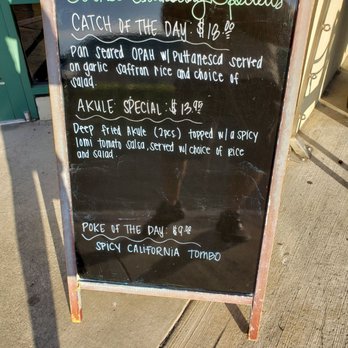 Specials
CATCH OF THE DAY: $18.00
Pan seared OPAH w/ Puttanesca served
on garlic saffron rice and choice of
salad.
AKULE SPECIAL: $13.95
Deep fried Akule (2pcs) topped w/ a spicy
lomi tomato salsa, served w/ choice of rice
and salad.
POKE OF THE DAY: $9.00
SPICY CALIFORNIA TOMBO